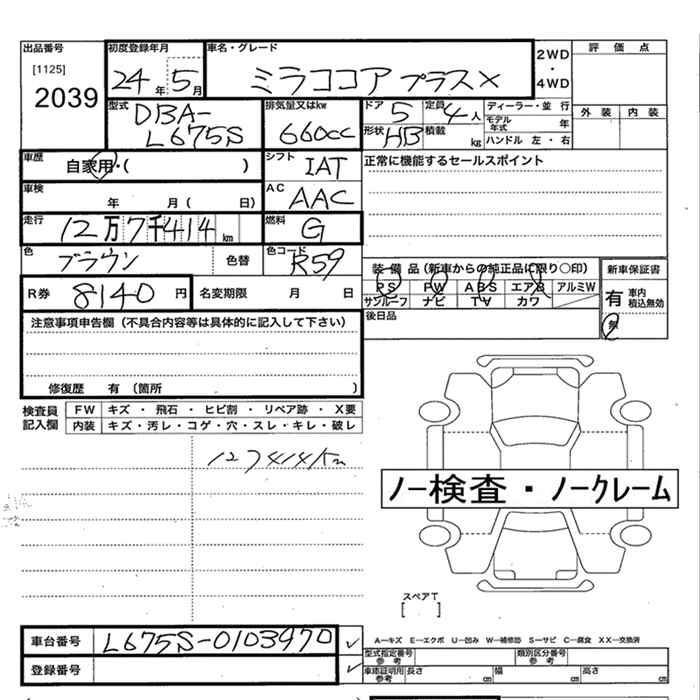 出品番号 初度登録年月 車名・グレード 2WD ・ 4WD 評価点
[1125]
2039
24年5月 ミラココア プラスX
外装 内装
型式 DBA-L675S 排気量又はkw 660cc ドア 5 定員 4人 ディーラー・並行
形状 HB 積載 kg モデル年式 年
ハンドル 左・右
車歴 自家用・( ) シフト IAT 正常に機能するセールスポイント
車検 年 月( 日) AC AAC
走行 12万7千414km 燃料 G
色 ブラウン 色替 色コード R59
装備品(新車からの純正品に限り○印) 新車保証書
PS PW ABS エアB アルミW 有 車内積込無効
サンルーフ ナビ TV カワ 無
R券 8140円 名変期限 月 日
後日品
注意事項申告欄(不具合内容等は具体的に記入して下さい)
修復歴 有(箇所 )
検査員記入欄 FW キズ・飛石・ヒビ割・リペア跡・X要
内装 キズ・汚レ・コゲ・穴・スレ・キレ・破レ
127414km
ノー検査・ノークレーム
スペアT
[ ]
車台番号 L675S-0103970
A-キズ E-エクボ U-凹み W-補修跡 S-サビ C-腐食 XX-交換済
型式指定番号 参考 類別区分番号 参考
登録番号
車庫証明用 参考 長さ cm 幅 cm 高さ cm